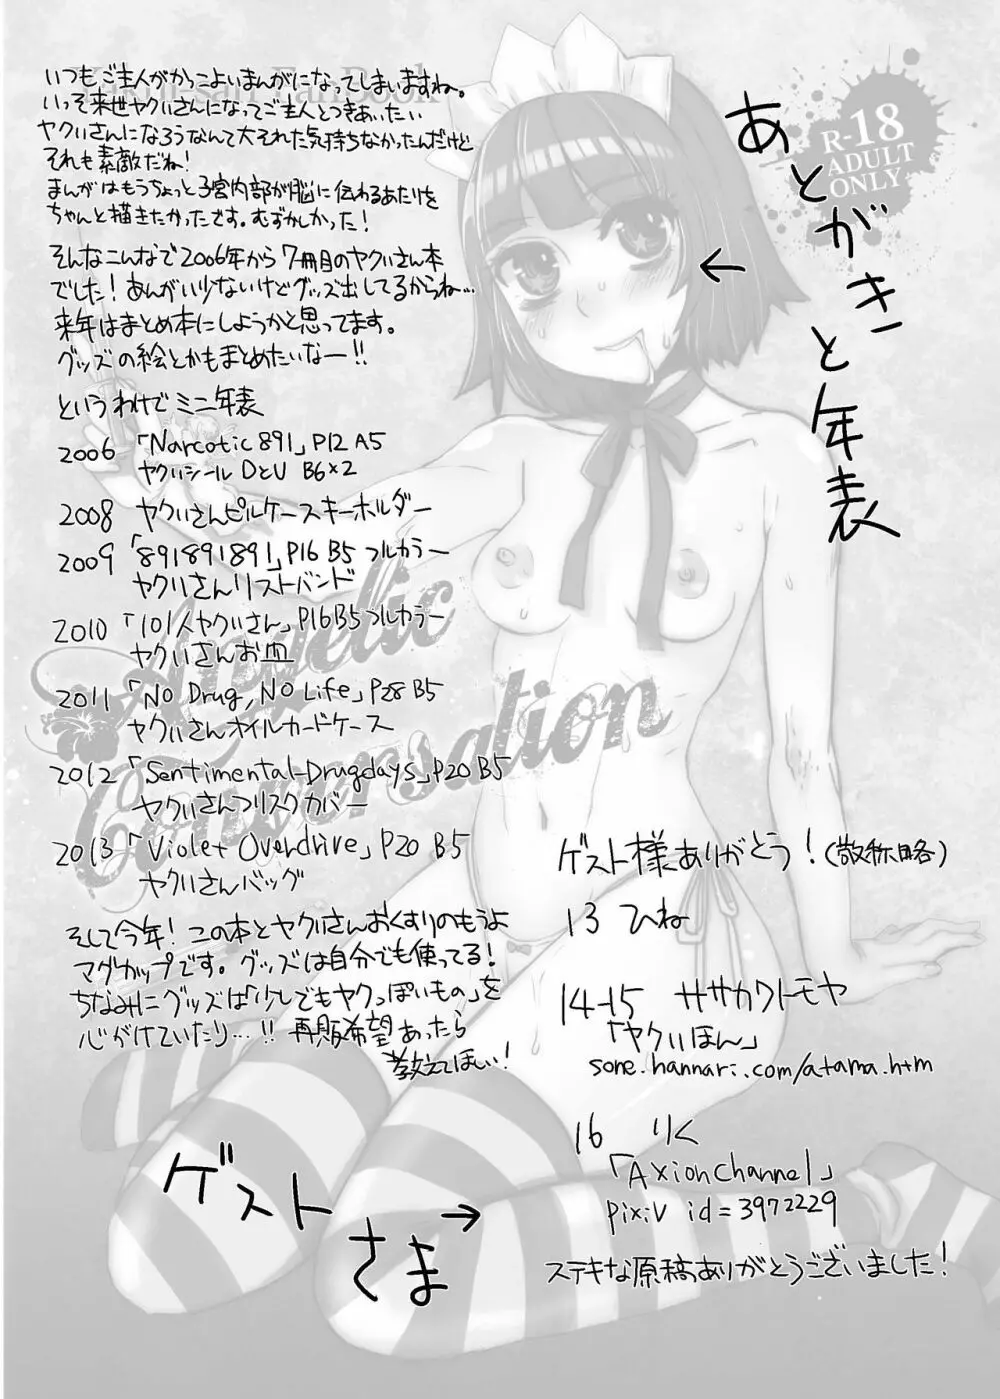 あとがきと年表
R-18
ADULT
ONLY
いつもご主人がかっこよいまんがになってしまいますね。
いっそ来世ヤクいさんになってご主人とつきあいたい
ヤクいさんになろうなんて大それた気持ちなかったんだけど
それも素敵だね!
まんがはもうちょっと子宮内部が脳に伝わるあたりを
ちゃんと描きたかったです。むずかしかった!
そんなこんなで2006年から7冊目のヤクいさん本
でした!あんがい少ないけどグッズ出してるからね…
来年はまとめ本にしようかと思ってます。
グッズの絵とかもまとめたいなー!!
というわけでミニ年表
2006 「Narcotic 891」P12 A5
ヤクいシール DとU B6×2
2008 ヤクいさんピルケースキーホルダー
2009 「891891891」P16 B5 フルカラー
ヤクいさんリストバンド
2010 「101人ヤクいさん」P16 B5 フルカラー
ヤクいさんお皿
2011 「No Drug, No Life」P28 B5
ヤクいさんオイルカードケース
2012 「Sentimental Drugdays」P20 B5
ヤクいさんフリスクカバー
2013 「Violet Overdrive」P20 B5
ヤクいさんバッグ
そして今年!この本とヤクいさんおくすりのもうよ
マグカップです。グッズは自分でも使ってる!
ちなみにグッズは「少しでもヤクっぽいもの」を
心がけていたり…!! 再販希望あったら
教えてほしい!
Angelic
Conversation
ゲストさま→
ゲスト様ありがとう!(敬称略)
13 ひね
14-15 ササカワトモヤ
「ヤクいほん」
sone.hannari.com/atama.htm
16 りく
「Axion Channel」
pixiv id=3972229
ステキな原稿ありがとうございました!